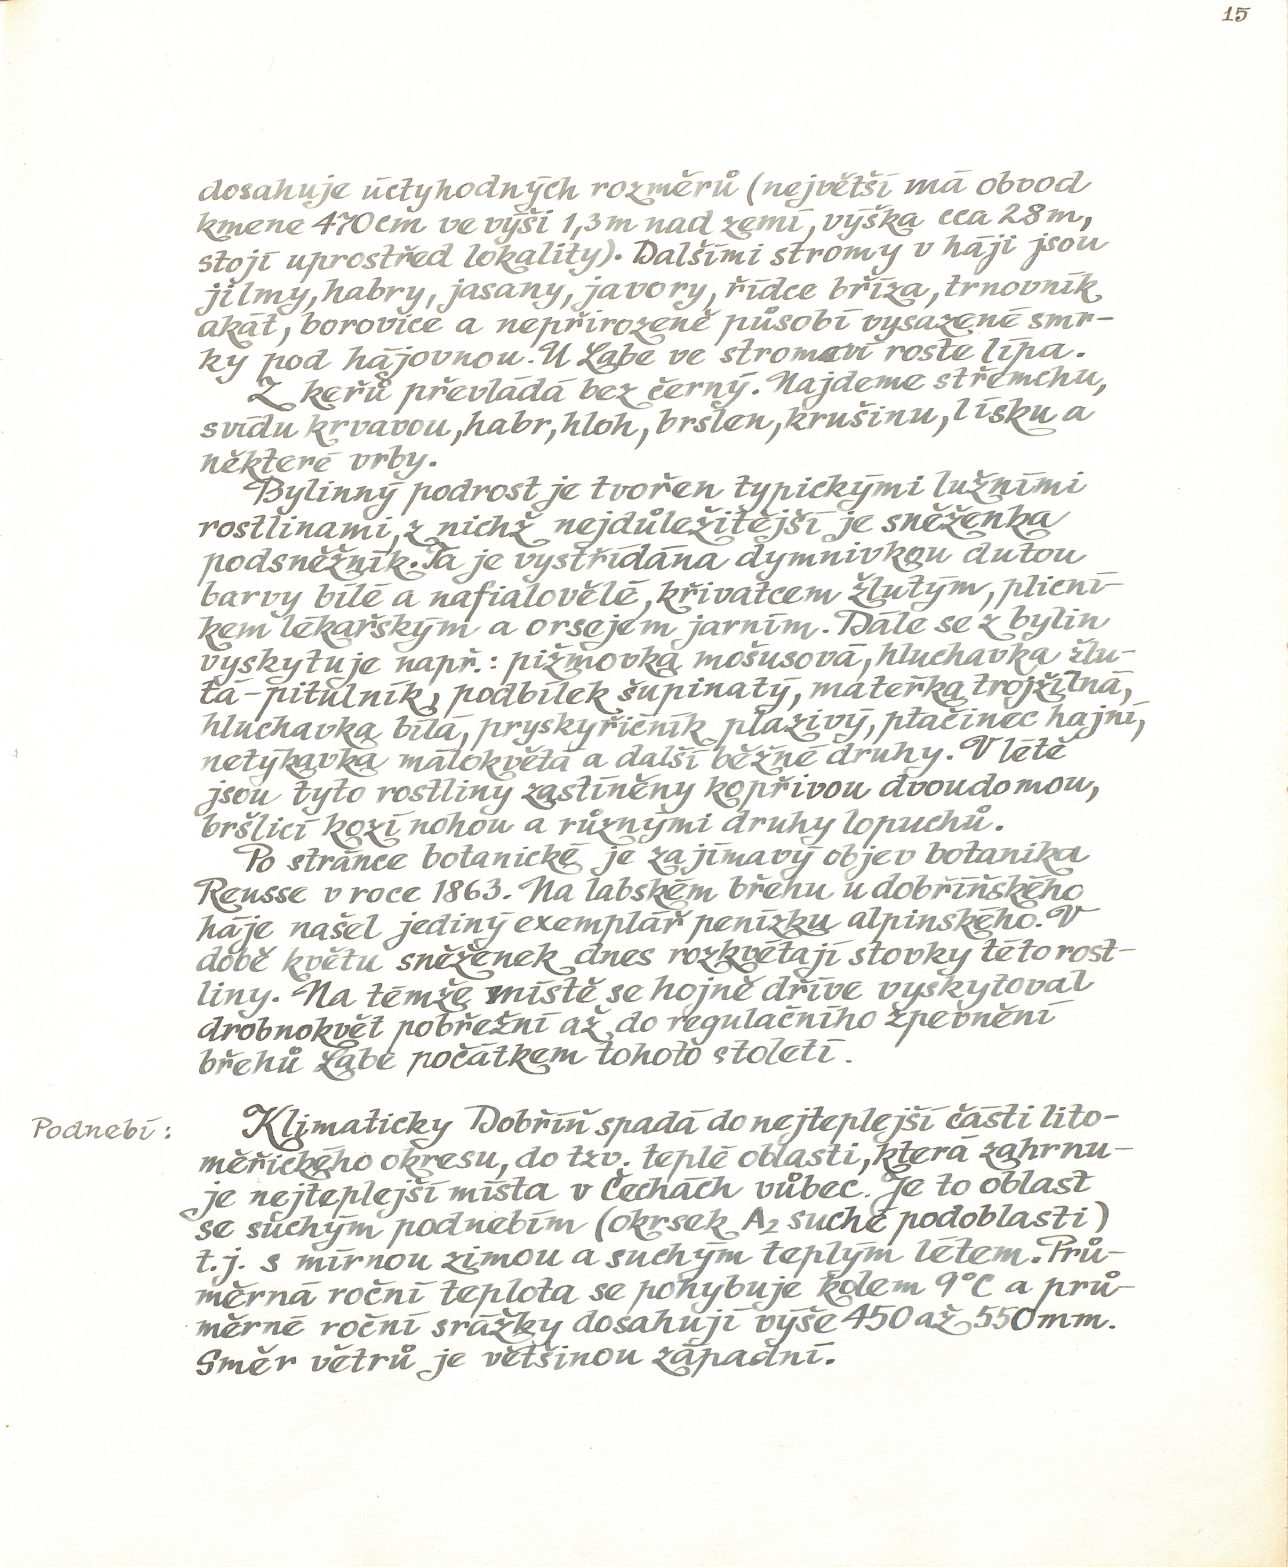 15
dosahuje úctyhodných rozměrů (největší má obvod
kmene 470cm ve výši 1,3m nad zemí, výška cca 28m,
stojí uprostřed lokality). Dalšími stromy v háji jsou
jilmy, habry, jasany, javory, řídce bříza, trnovník
akát, borovice a nepřirozeně působí vysazené smr-
ky pod hájovnou. U Labe ve stromoví roste lípa.
Z keřů převládá bez černý. Najdeme střemchu,
svídu krvavou, habr, hloh, bršlen, krušinu, lísku a
některé vrby.
Bylinný podrost je tvořen typickými lužními
rostlinami, z nichž nejdůležitější je sněženka
podsněžník. Ta je vystřídána dymnivkou dutou
barvy bílé a nafialovělé, křivatcem žlutým, plicní-
kem lékařským a orsejem jarním. Dále se z bylin
vyskytuje např.: pižmovka mošusová, hluchavka žlu-
tá - pitulník, podbílek šupinatý, mateřka trojžilná,
hluchavka bílá, pryskyřičník plazivý, ptačinec hajní,
netýkavka málokvětá a další běžné druhy. V létě
jsou tyto rostliny zastíněny kopřivou dvoudomou,
bršlicí kozí nohou a různými druhy lopuchů.
Po stránce botanické je zajímavý objev botanika
Reusse v roce 1863. Na labském břehu u dobříňského
háje našel jediný exemplář penízku alpinského. V
době květu sněženek dnes rozkvétají stovky této rost-
liny. Na témže místě se hojně dříve vyskytoval
drobnokvět pobřežní až do regulačního zpevnění
břehů Labe počátkem tohoto století.
Podnebí:
Klimaticky Dobříň spadá do nejteplejší části lito-
měřického okresu, do tzv. teplé oblasti, která zahrnu-
je nejteplejší místa v Čechách vůbec. Je to oblast
se suchým podnebím (okrsek A2 suché podoblasti)
t.j. s mírnou zimou a suchým teplým létem. Prů-
měrná roční teplota se pohybuje kolem 9°C a prů-
měrné roční srážky dosahují výše 450 až 550mm.
Směr větrů je většinou západní.